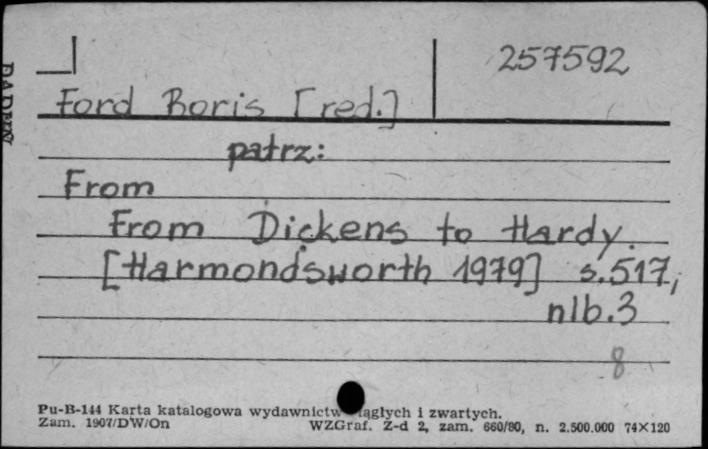 257592
Ford Boris [red.]
patrz:
From
From Dickens to Hardy.
[Harmondsworth 1979] s.517,
nlb.3
8
Pu-B-144 Karta katalogowa wydawnictw ciągłych i zwartych.
Zam. 1907/DW/On WZGraf. Z-d 2, zam. 660/80, n. 2.500.000 74×120